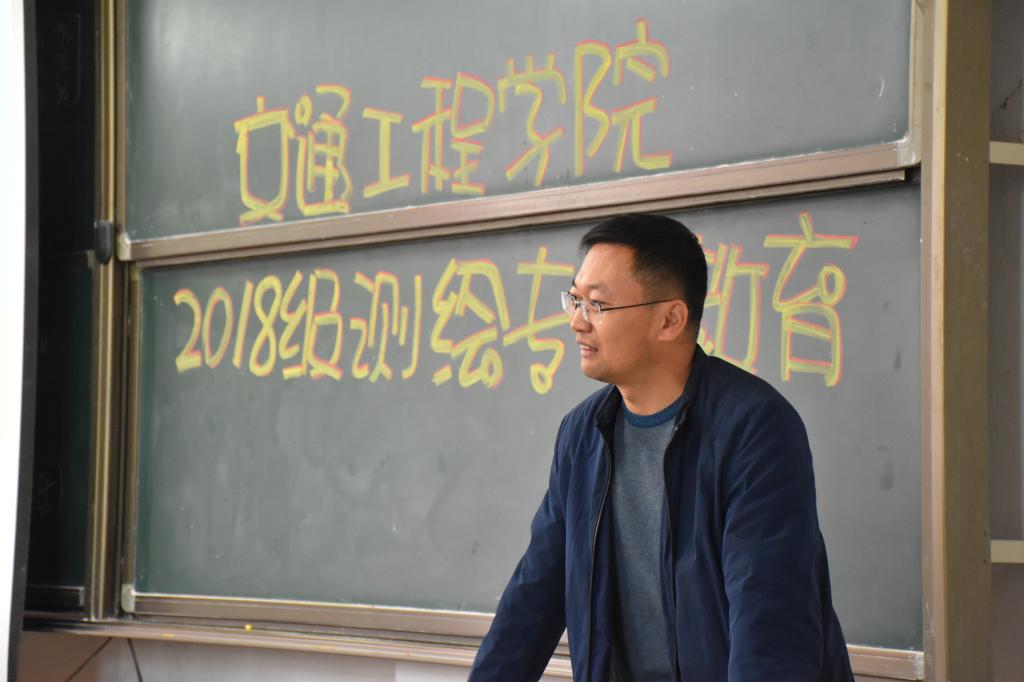 交通工程学院
2018级测绘专 教育